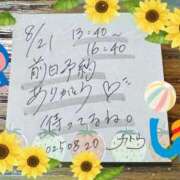 8/21 13:40~
16:40
前日予約
ありがとう♡
待ってるね。
025.08.20